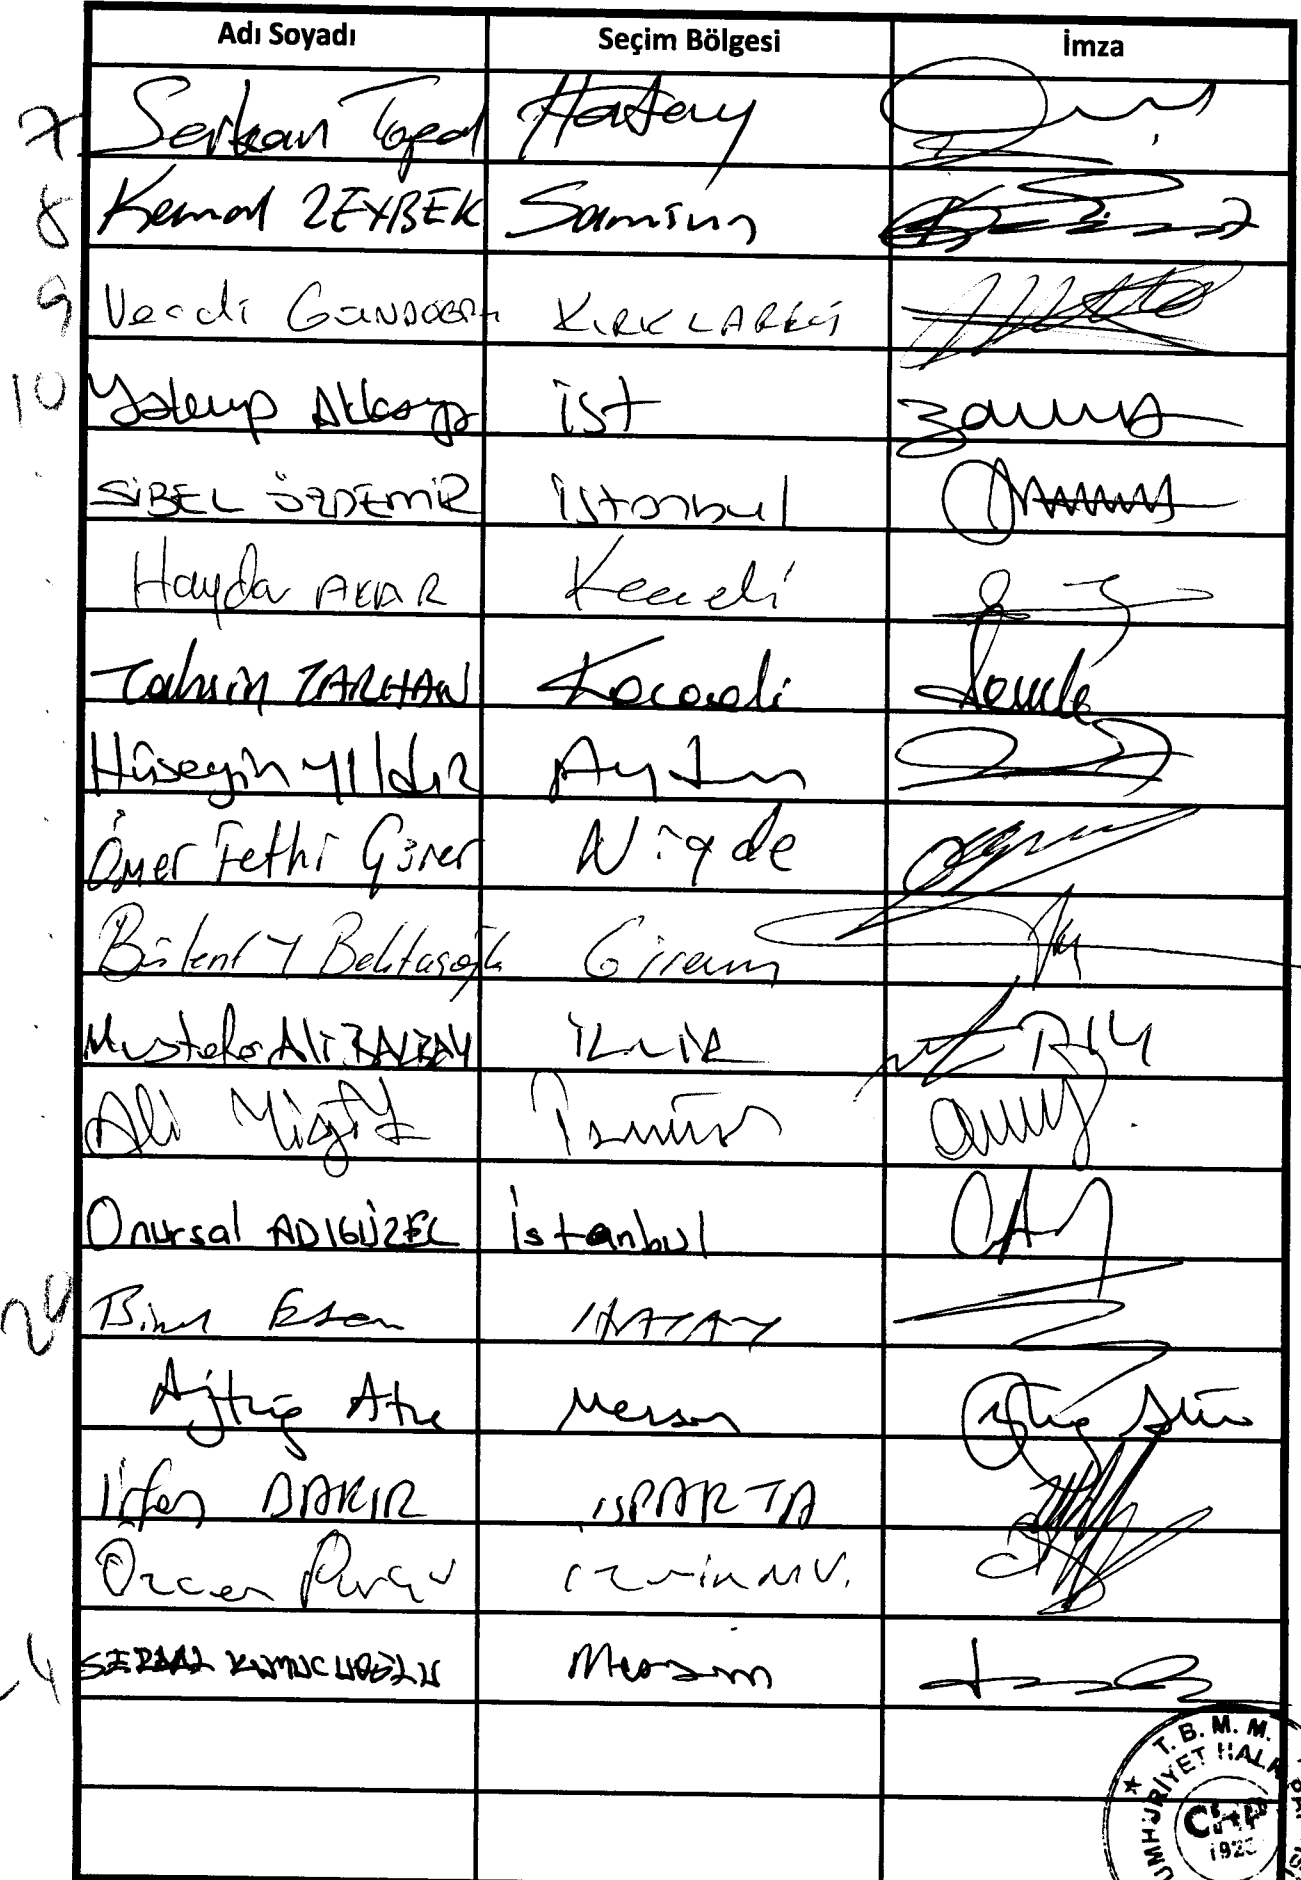 Adı Soyadı Seçim Bölgesi İmza
7 Serkan Topal Hatay
8 Kemal ZEYBEK Samsun
9 Vecdi GÜNDOĞDU KIRKLARELİ
10 Yakup Akkaya İST
SİBEL ÖZDEMİR İstanbul
Haydar AKAR Kocaeli
Tahsin TARHAN Kocaeli
Hüseyin YILDIZ Aydın
Ömer Fethi Gürer Niğde
Bülent Y Bektaşoğlu Giresun
Mustafa Ali BALBAY İZMİR
Ali Yiğit İzmir
Onursal ADIGÜZEL İstanbul
20 Birol Ertem HATAY
Aytuğ Atıcı Mersin
İrfan BAKIR ISPARTA
Özcan Purçu İzmir MV.
SERDAL KUYUCUOĞLU Mersin
T. B. M. M.
CUMHURİYET HALK
CHP
1923